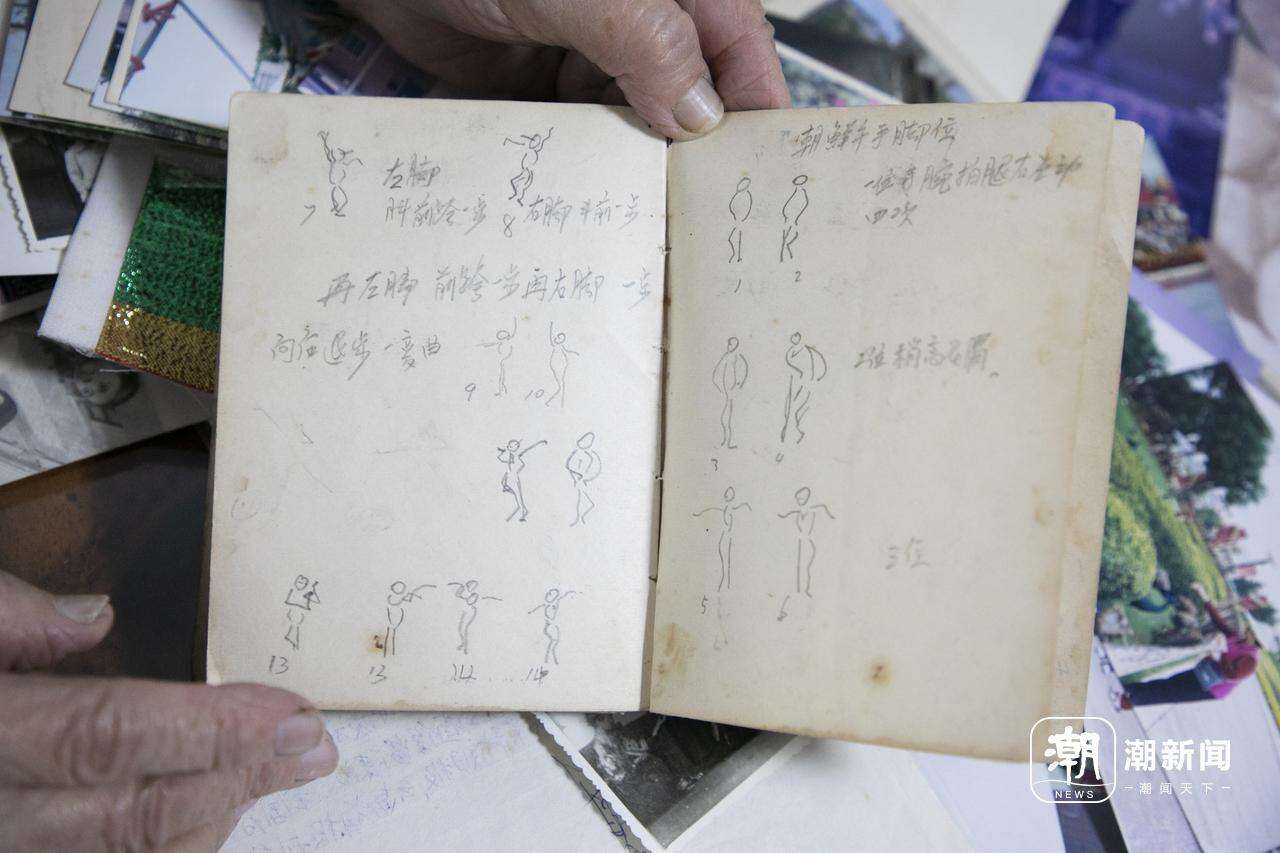 左脚
7 斜前跨一步
8 右脚斜前一步..
再左脚 前跨一步再右脚 一步
向后退步 一弯曲
9 10
13 13 14 ..... 14
朝鲜族手脚位
一位 腕拍腿右左动
四次
1 2
2位稍高
3 4
三位
5 6
潮 潮新闻
NEWS 潮闻天下